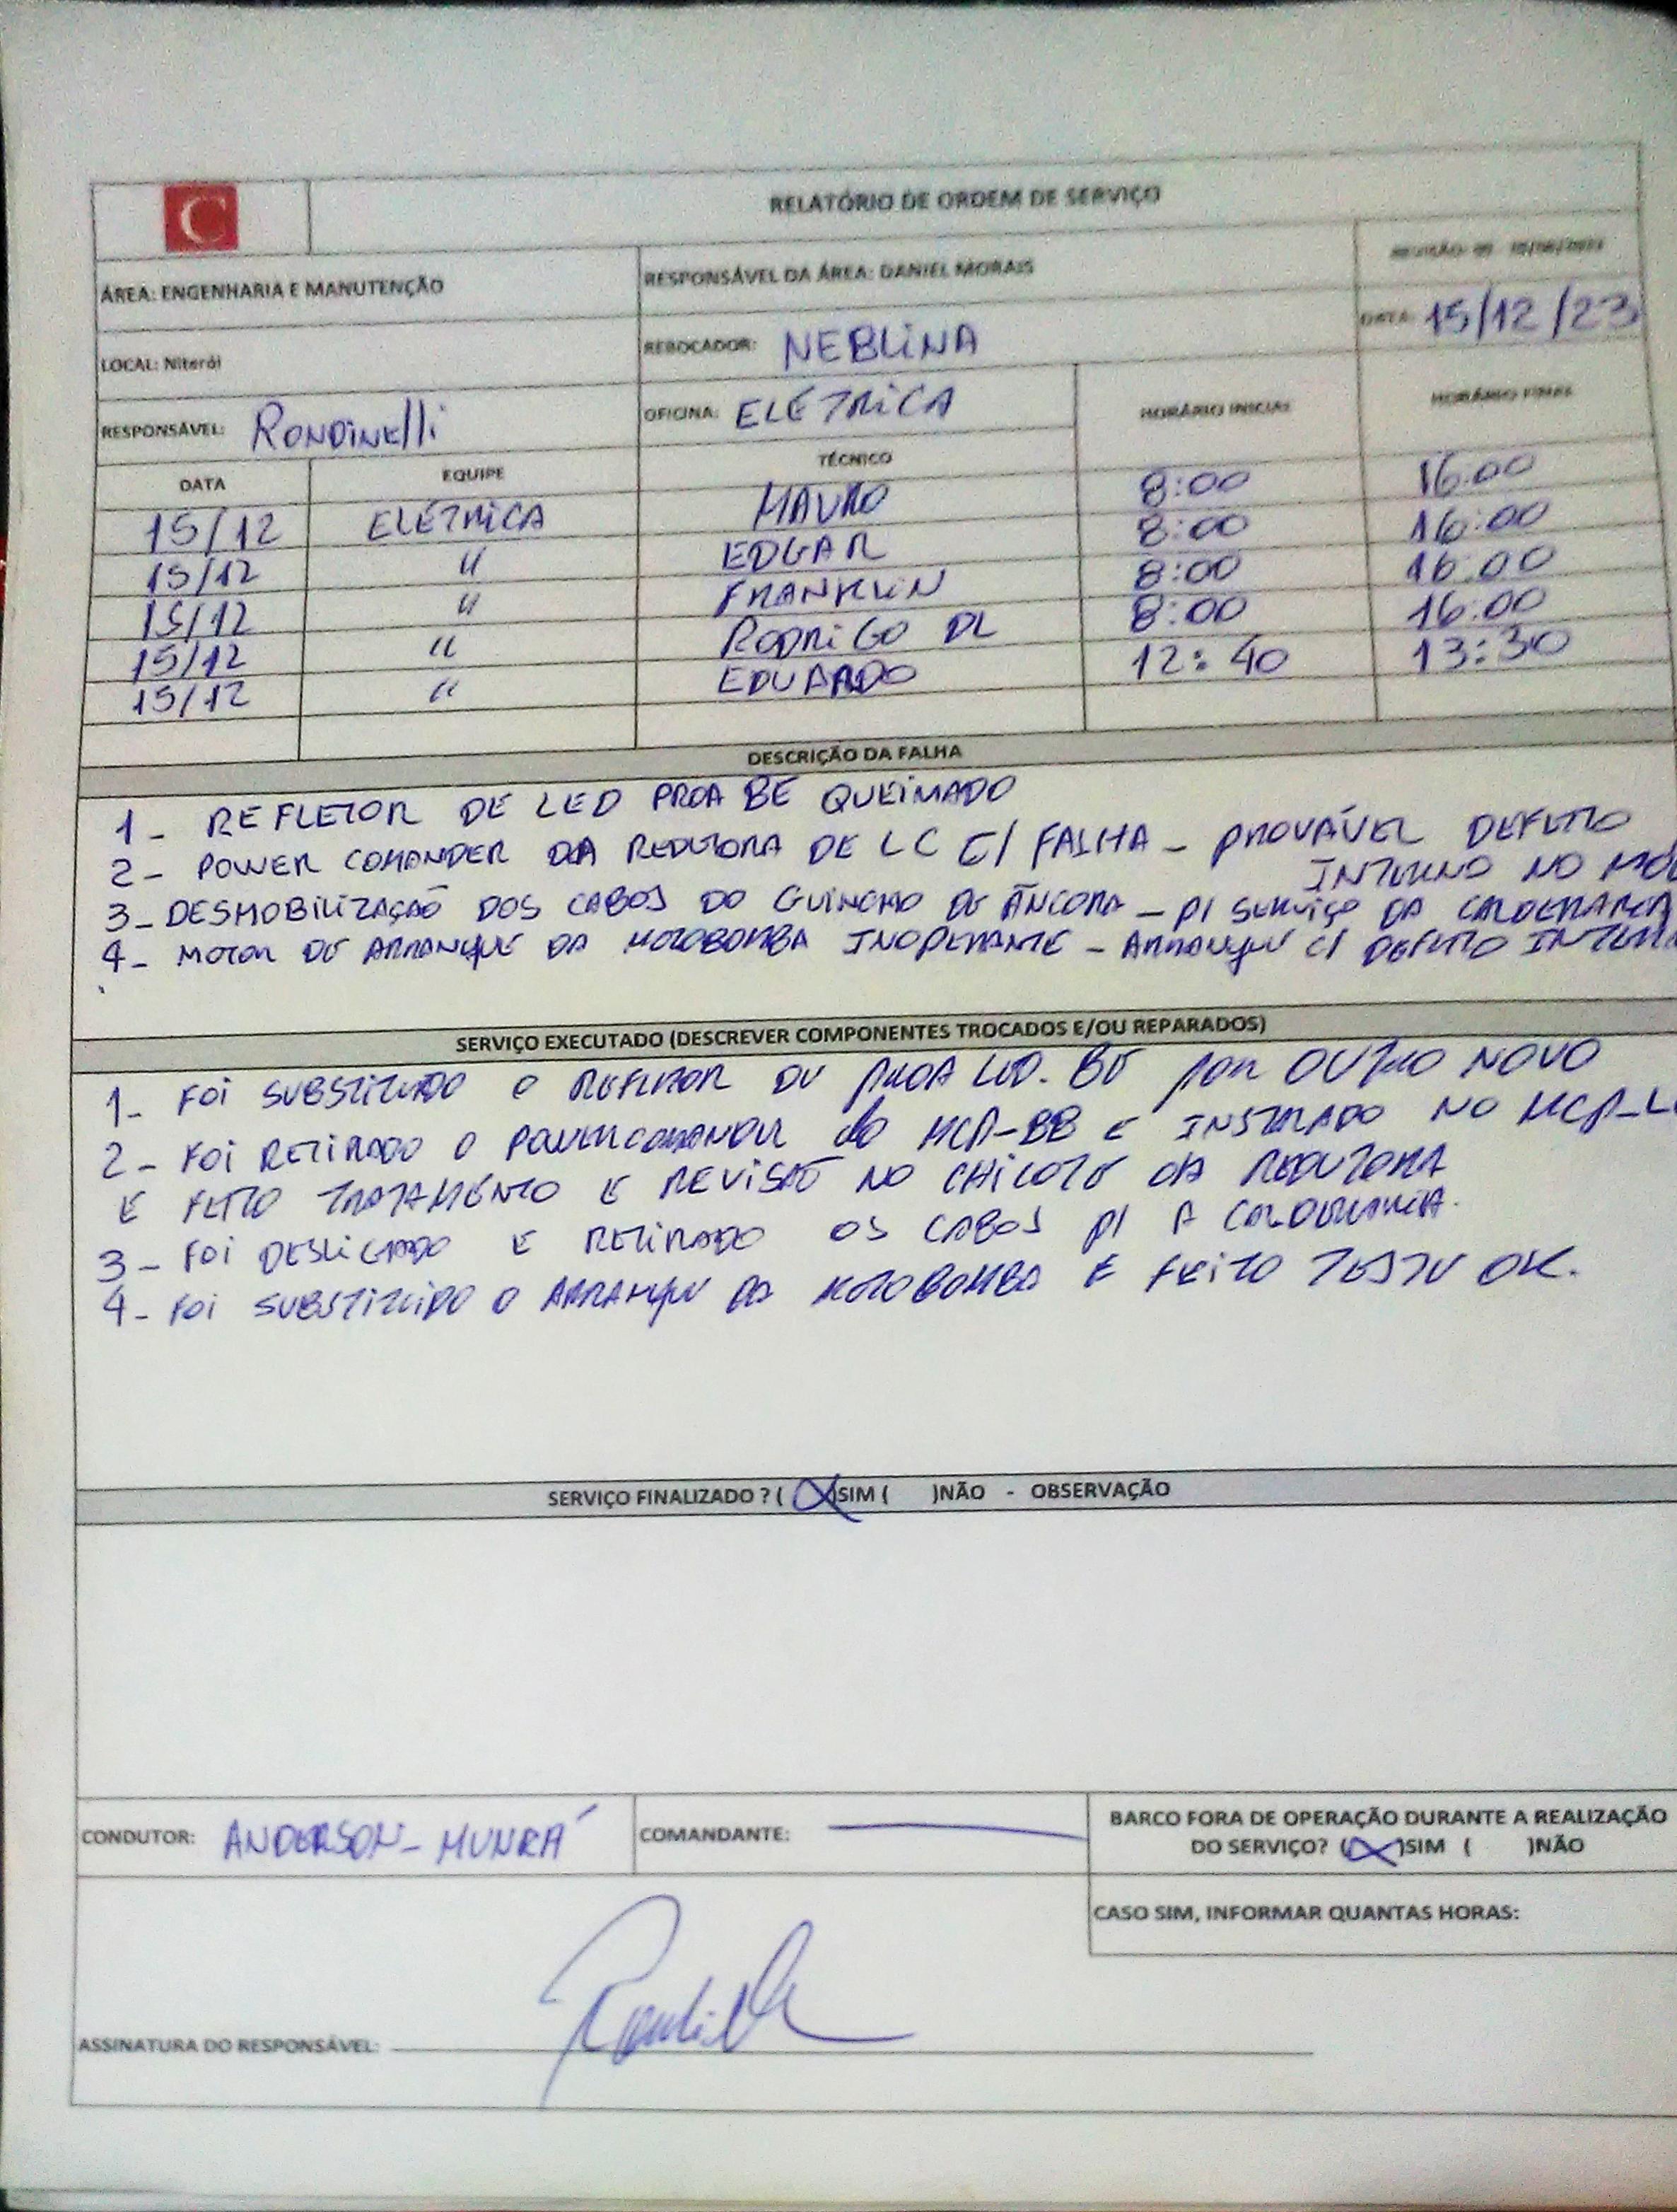 C
RELATÓRIO DE ORDEM DE SERVIÇO
ÁREA: ENGENHARIA E MANUTENÇÃO
RESPONSÁVEL DA ÁREA: DANIEL MORAIS
LOCAL: Niterói
REBOCADOR: NEBLINA
DATA: 15/12/23
RESPONSÁVEL: RONDINElli
OFICINA: ELÉTRICA
HORÁRIO INICIAL
HORÁRIO FINAL
DATA EQUIPE TÉCNICO
15/12 ELÉTRICA MAURO 8:00 16:00
15/12 " EDGAR 8:00 16:00
15/12 " FRANKLIN 8:00 16:00
15/12 " RODRIGO DL 8:00 16:00
15/12 " EDUARDO 12:40 13:30
DESCRIÇÃO DA FALHA
1- REFLETOR DE LED PROA BE QUEIMADO
2- POWER COMANDER DA REDUTORA DE LC C/ FALHA - PROVÁVEL DEFEITO
INTERNO NO
3- DESMOBILIZAÇÃO DOS CABOS DO GUINCHO DE ÂNCORA - P/ SERVIÇO DA CALDERARIA
4- MOTOR DE ARRANQUE DA MOTOBOMBA INOPERANTE - ARRANQUE C/ DEFEITO
SERVIÇO EXECUTADO (DESCREVER COMPONENTES TROCADOS E/OU REPARADOS)
1- FOI SUBSTITUIDO O REFLETOR DE PROA LED. BE POR OUTRO NOVO
2- FOI RETIRADO O POWERCOMANDER do MCP-BB E INSTALADO NO
E FEITO TRATAMENTO E REVISÃO NO CHICOTE DA REDUTORA
3- FOI DESLIGADO E RETIRADO OS CABOS P/ A CALDERARIA.
4- FOI SUBSTITUIDO O ARRANQUE DA MOTOBOMBA E FEITO TESTE OK.
SERVIÇO FINALIZADO ? ( X )SIM ( )NÃO - OBSERVAÇÃO
CONDUTOR: ANDERSON - MUNRÁ
COMANDANTE:
BARCO FORA DE OPERAÇÃO DURANTE A REALIZAÇÃO
DO SERVIÇO? (X)SIM ( )NÃO
CASO SIM, INFORMAR QUANTAS HORAS:
ASSINATURA DO RESPONSÁVEL: